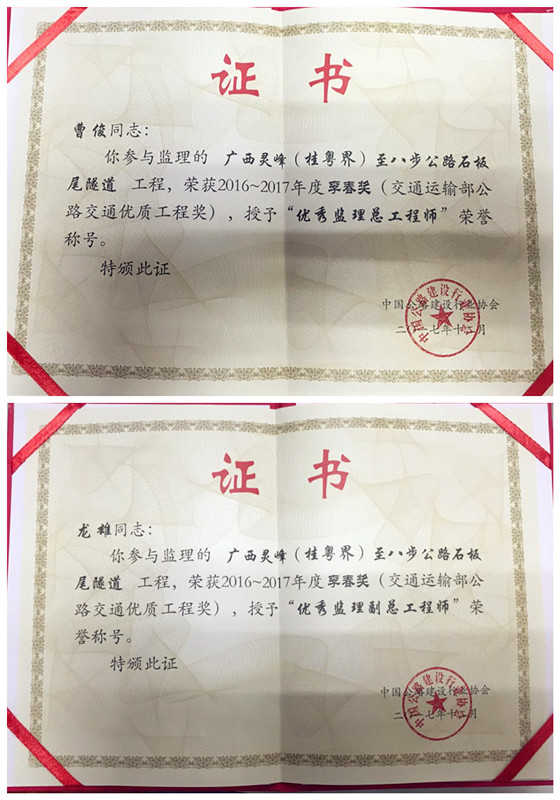 证书
曹俊同志：
你参与监理的 广西灵峰（桂粤界）至八步公路石板
尾隧道 工程，荣获2016~2017年度李春奖（交通运输部公
路交通优质工程奖），授予“优秀监理总工程师”荣誉
称号。
特颁此证
中国公路建设行业协会
二〇一七年十二月
证书
龙雄同志：
你参与监理的 广西灵峰（桂粤界）至八步公路石板
尾隧道 工程，荣获2016~2017年度李春奖（交通运输部公
路交通优质工程奖），授予“优秀监理副总工程师”荣
誉称号。
特颁此证
中国公路建设行业协会
二〇一七年十二月